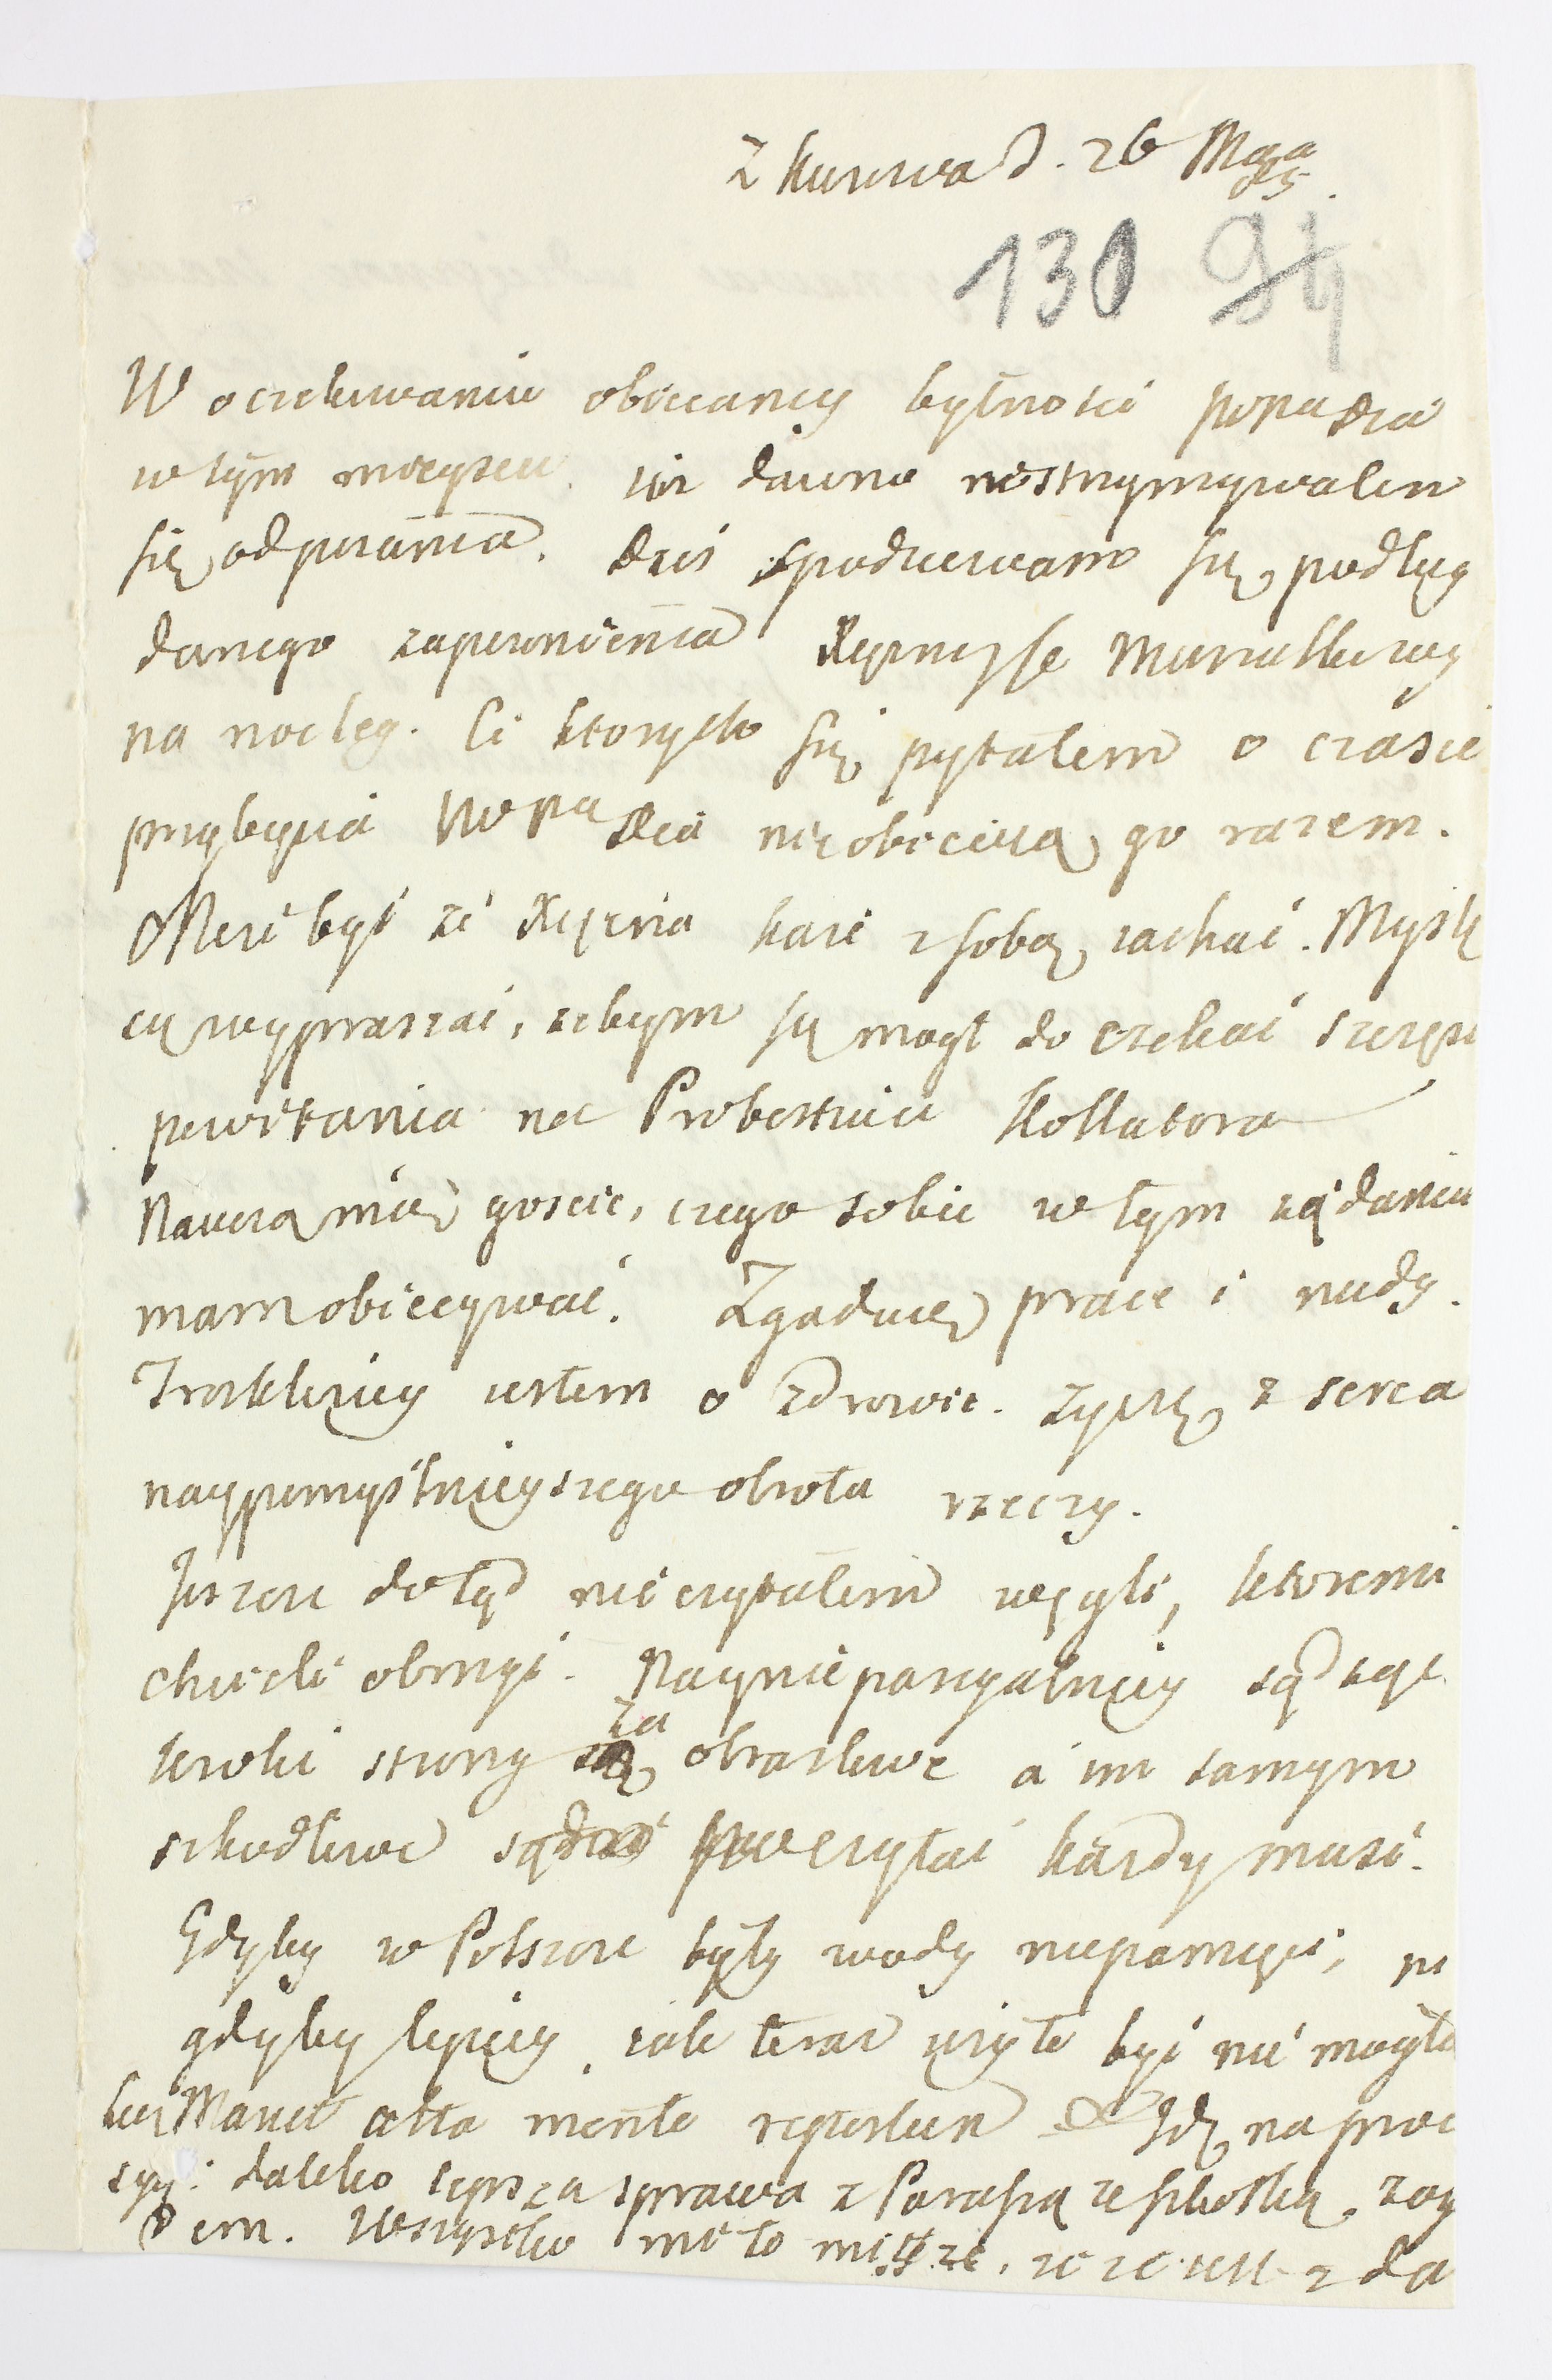 Z Kurowa d. 26 Maja
85.
130 94
W oczekiwaniu obiecaney bytności WPPa Dzia
w tym mieyscu iuż dawno wstrzymywalem
się od pisania. Dziś spodziewam się podług
danego zapewnienia Xiężney se Marszałkowey
na nocleg. Ci ktorych się pytalem o czasie
przybycia WPPa Dzia nie obiecuią go razem.
Może być że Xiężna każe z sobą iachać. Myślę
się wypraszać, żebym się mogł doczekać szczęśc
powitania na Probostwie Kollatora
Nauczą mię goście, czego sobie w tym żądaniu
mam obiecywać. Zgaduię prace i nudy.
Troskliwy iestem o zdrowie. Życzę z serca
naypomyślnieyszego obrotu rzeczy.
Jeszcze dotąd nie czytalem węzyli, ktoremi
chcieli obmyć. Nayniepascyalniey sądząc
kroki strony za obraźliwe a im samym
szkodliwe poczytać każdy musi.
Gdyby w Polszcze były wody niepamięci,
gdyby lepiey iak teraz użyte być nie mogły
lecz Manet alta mente repostum & Idę na proc
syą: daleko lepsza sprawa z Parafią
dem. Wszystko mi to